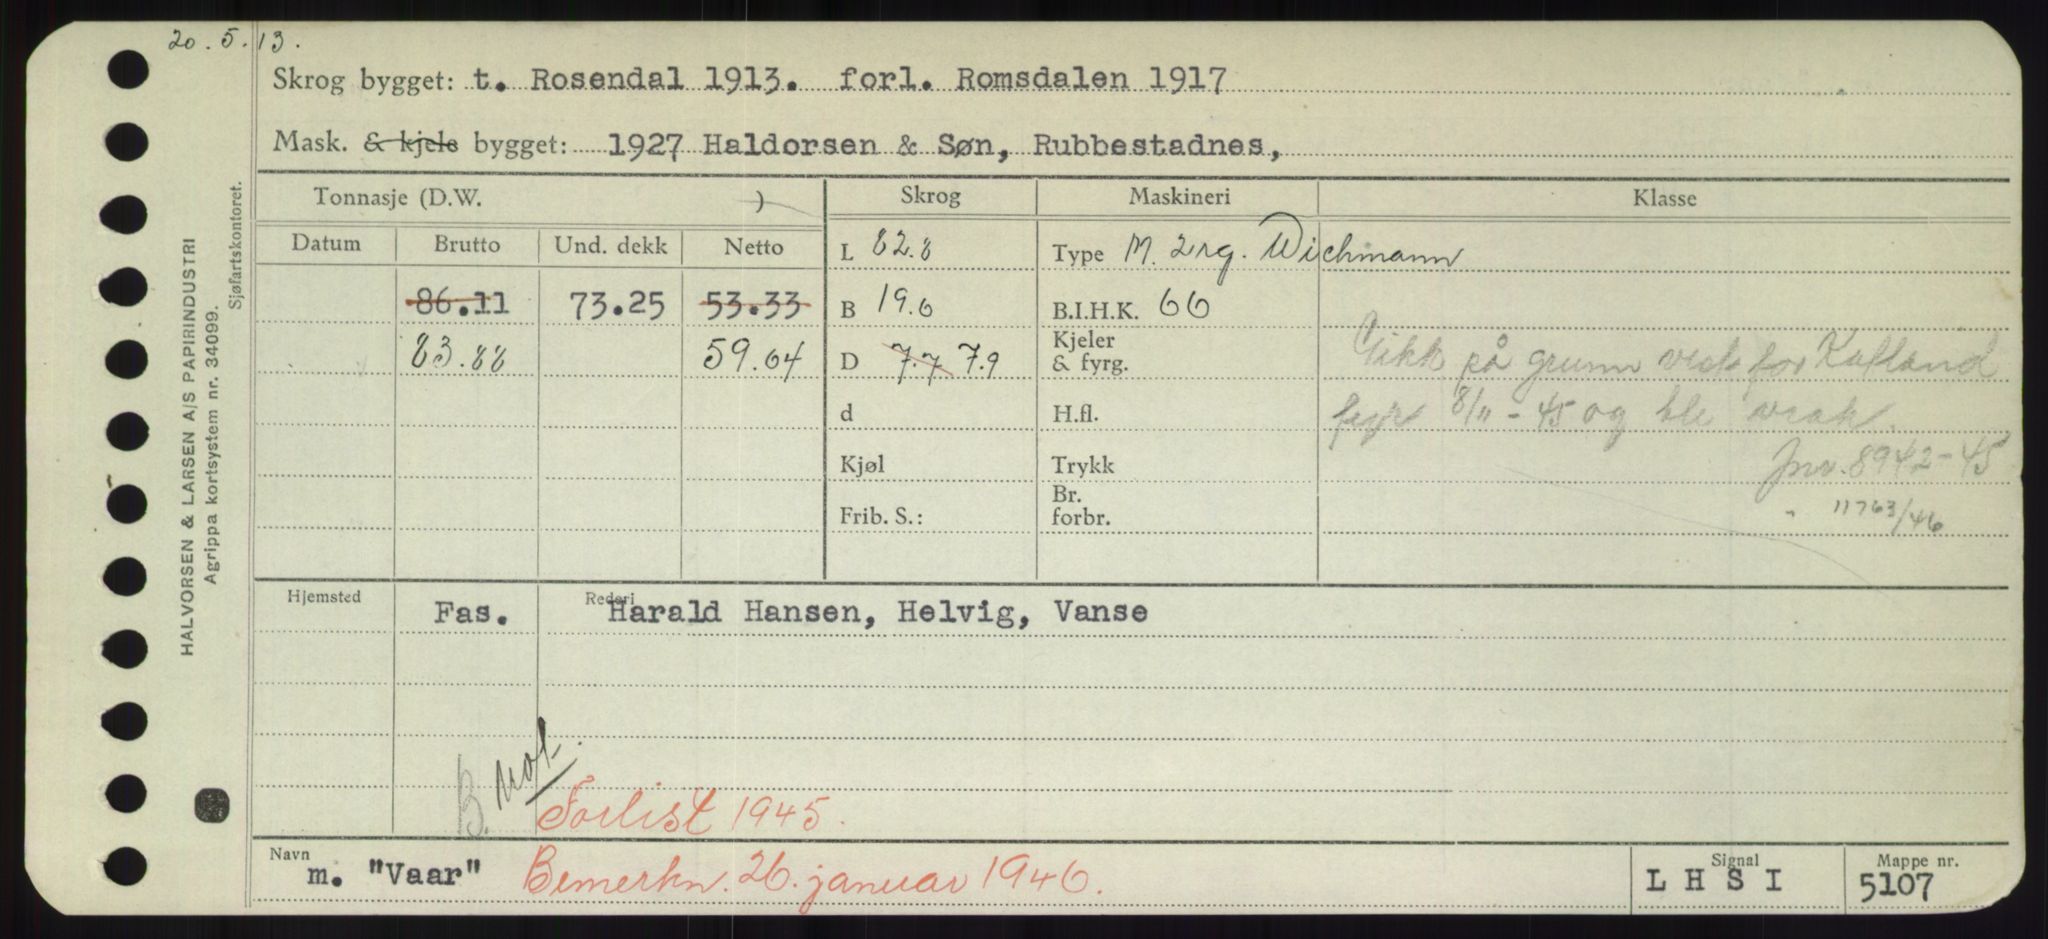 20.5.13.
Skrog bygget: t. Rosendal 1913. forl. Romsdalen 1917
Mask. & kjele bygget: 1927 Haldorsen & Søn, Rubbestadnes,
Tonnasje (D.W. ) Skrog Maskineri Klasse
Datum Brutto Und. dekk Netto L 82.8 Type M. 2 rg. Wichmann
86.11 73.25 53.33 B 19.6 B.I.H.K. 66
83.88 59.64 D 7.7 7.9 Kjeler & fyrg. Gikk på grunn vest for Kalland
d H.fl. fyr 8/11-45 og ble vrak.
Kjøl Trykk Jnr. 8942-45
Frib. S.: Br. forbr. " 11763/46
Hjemsted Fas. Rederi Harald Hansen, Helvig, Vanse
B.
Forlist 1945.
Navn m. "Vaar" Bemerkn. 26. januar 1946. Signal L H S I Mappe nr. 5107
HALVORSEN & LARSEN A/S PAPIRINDUSTRI
Agrippa kortsystem nr. 34099.
Sjøfartskontoret.